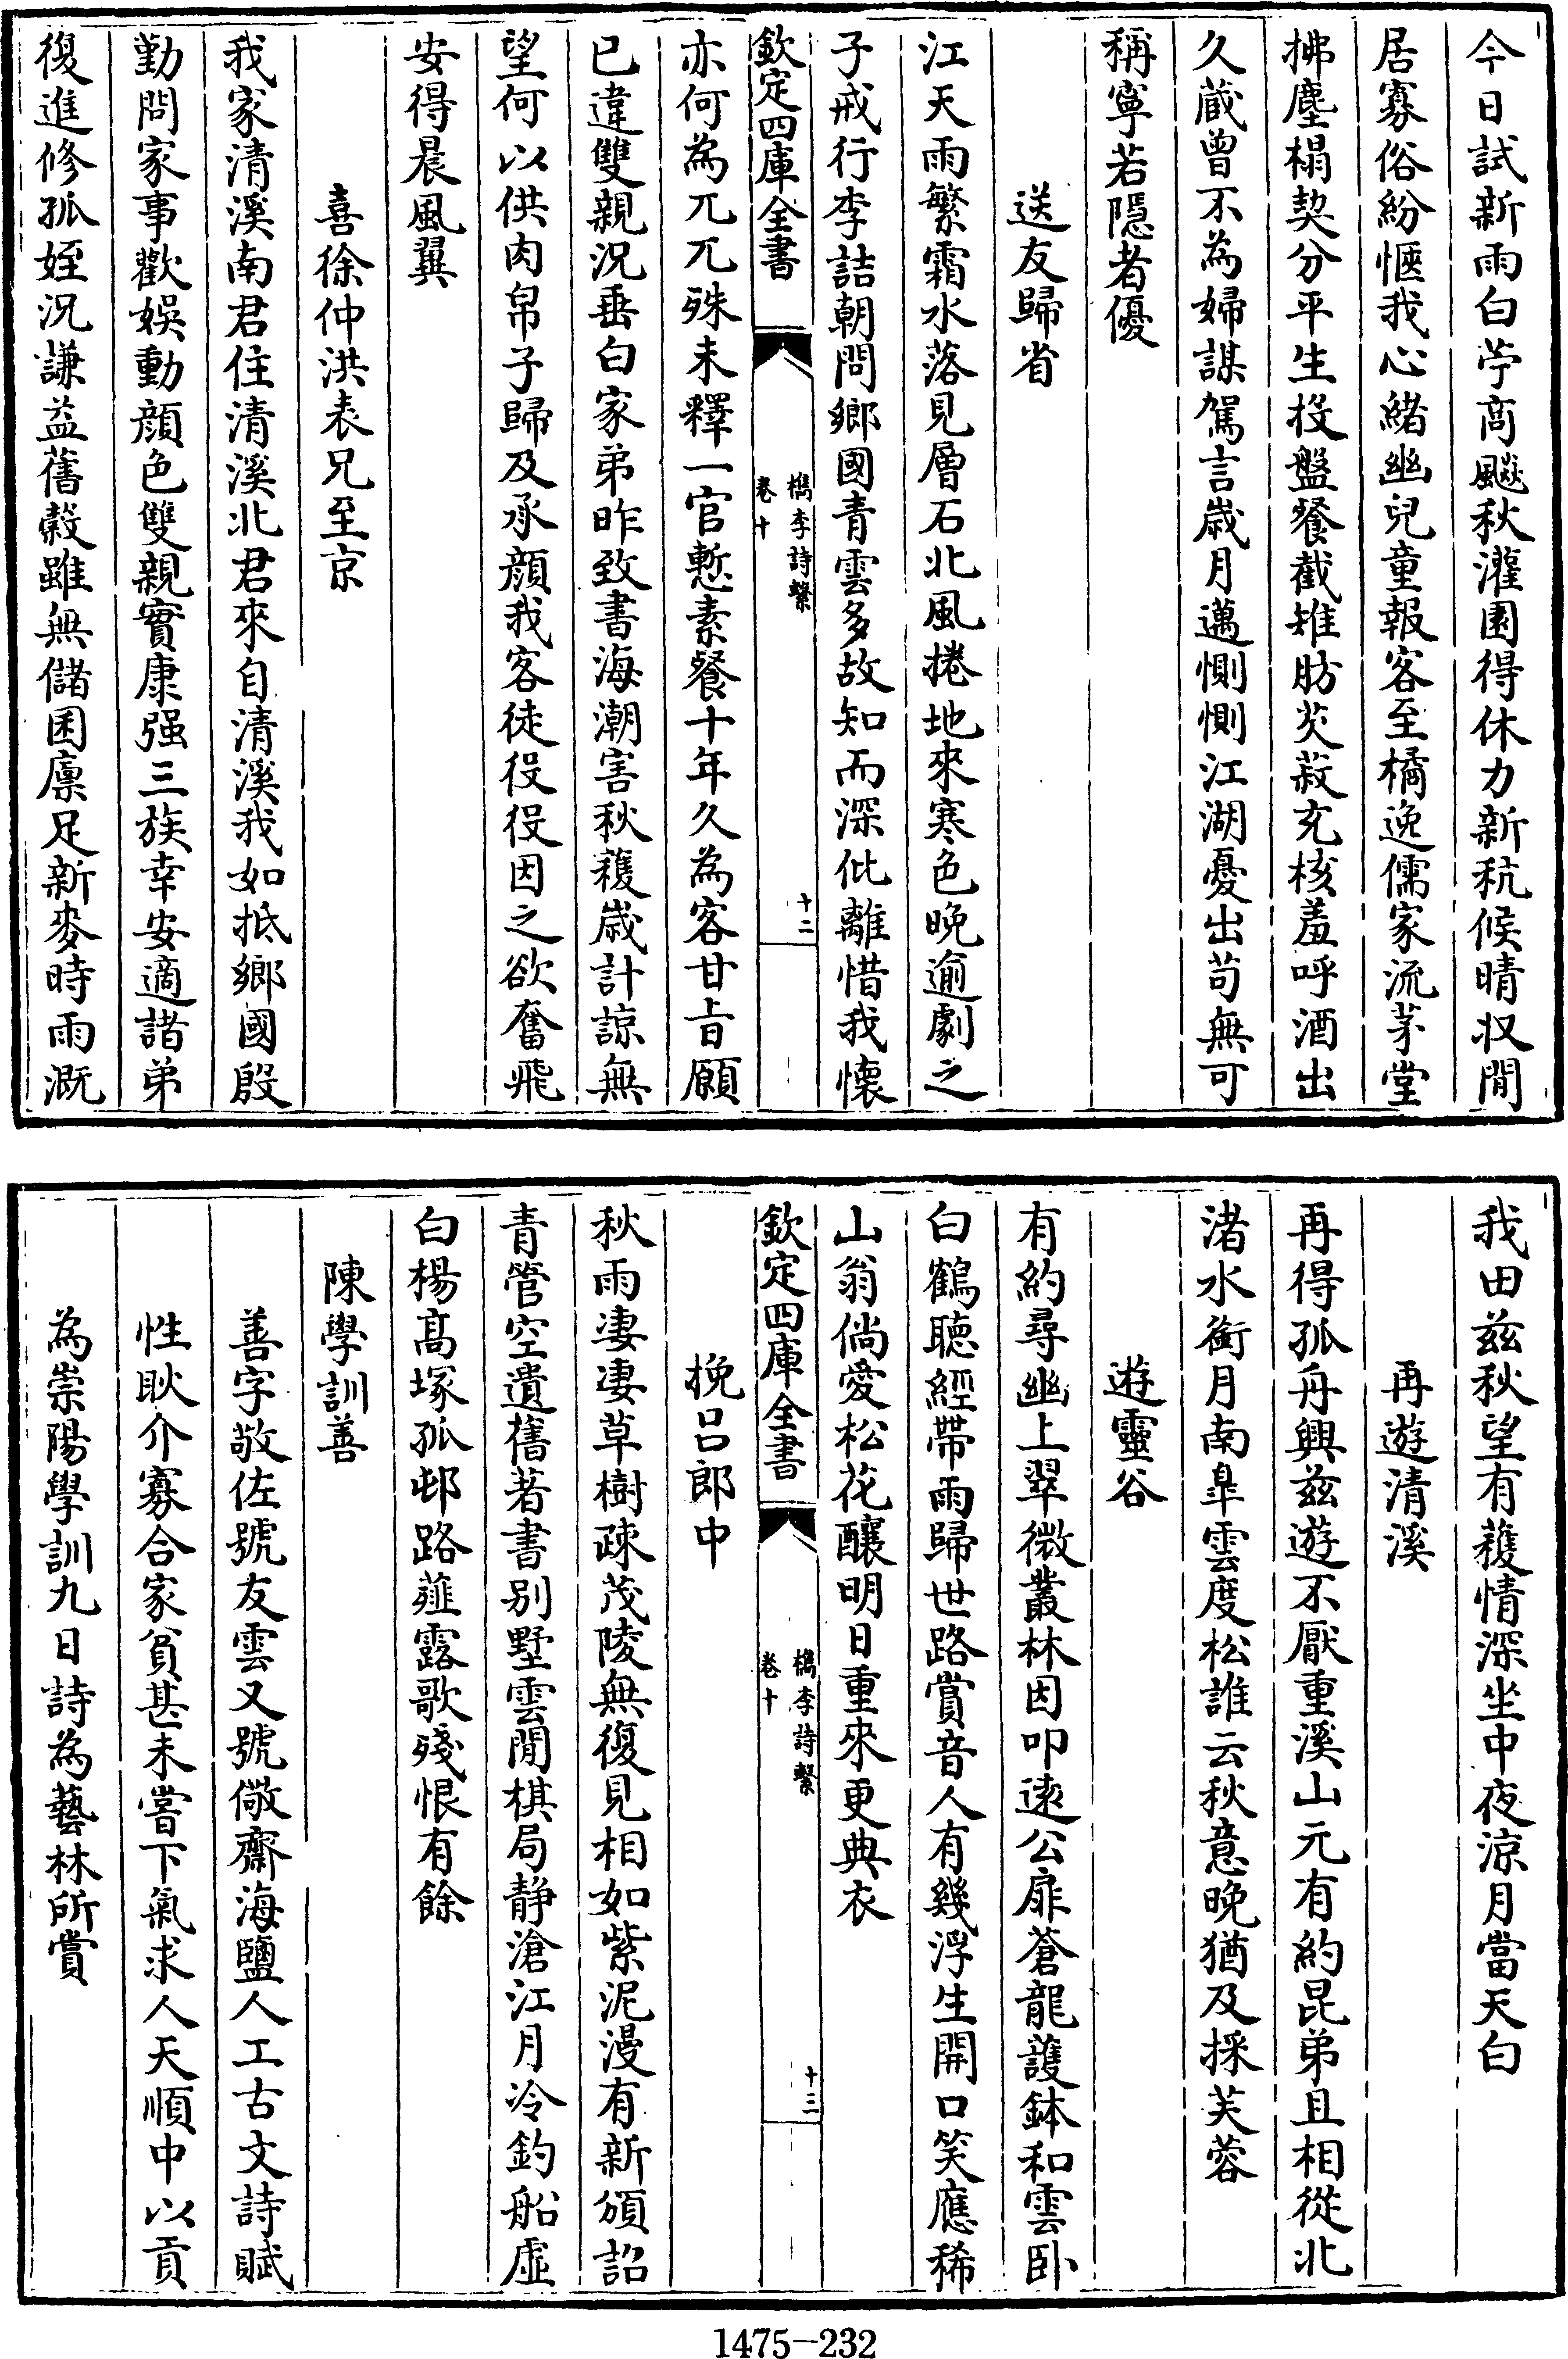 今日試新雨白苧商飈秋灌園得休力新秔候晴収閒
居寡俗紛愜我心緒幽兒童報客至橘逸儒家流茅堂
拂塵榻契分平生投盤餐截雉肪炎菽充核羞呼酒出
久蔵曾不為婦謀駕言嵗月邁惻惻江湖憂出苟無可
稱寧若隱者優
送友歸省
江天雨繁霜水落見層石北風捲地來寒色晚逾劇之
子戒行李詰朝問鄉國青雲多故知而深仳離惜我懷
欽定四庫全書
檇李詩繫
卷十
十二
亦何為兀兀殊未釋一官慙素餐十年久為客甘㫖願
已違雙親況垂白家弟昨致書海潮害秋穫嵗計諒無
望何以供肉帛子歸及承顔我客徒役役因之欲奮飛
安得晨風翼
喜徐仲洪表兄至京
我家清溪南君住清溪北君來自清溪我如抵鄉國殷
勤問家事歡娯動顔色雙親實康强三族幸安適諸弟
復進修孤姪況謙益舊榖雖無儲囷廪足新麥時雨溉
我田兹秋望有穫情深坐中夜涼月當天白
再遊清溪
再得孤舟興兹遊不厭重溪山元有約昆弟且相從北
渚水銜月南臯雲度松誰云秋意晚猶及採芙蓉
遊靈谷
有約尋幽上翠微叢林因叩逺公扉蒼龍護鉢和雲卧
白鶴聽經帶雨歸世路賞音人有幾浮生開口笑應稀
山翁倘愛松花釀明日重來更典衣
欽定四庫全書
檇李詩繫
卷十
十三
挽吕郎中
秋雨凄凄草樹疎茂陵無復見相如紫泥漫有新頒詔
青管空遺舊著書别墅雲閒棋局静滄江月冷釣船虚
白楊髙塚孤邨路薤露歌殘恨有餘
陳學訓善
善字敬佐號友雲又號儆齋海鹽人工古文詩賦
性耿介寡合家貧甚未嘗下氣求人天順中以貢
為崇陽學訓九日詩為藝林所賞
1475-232